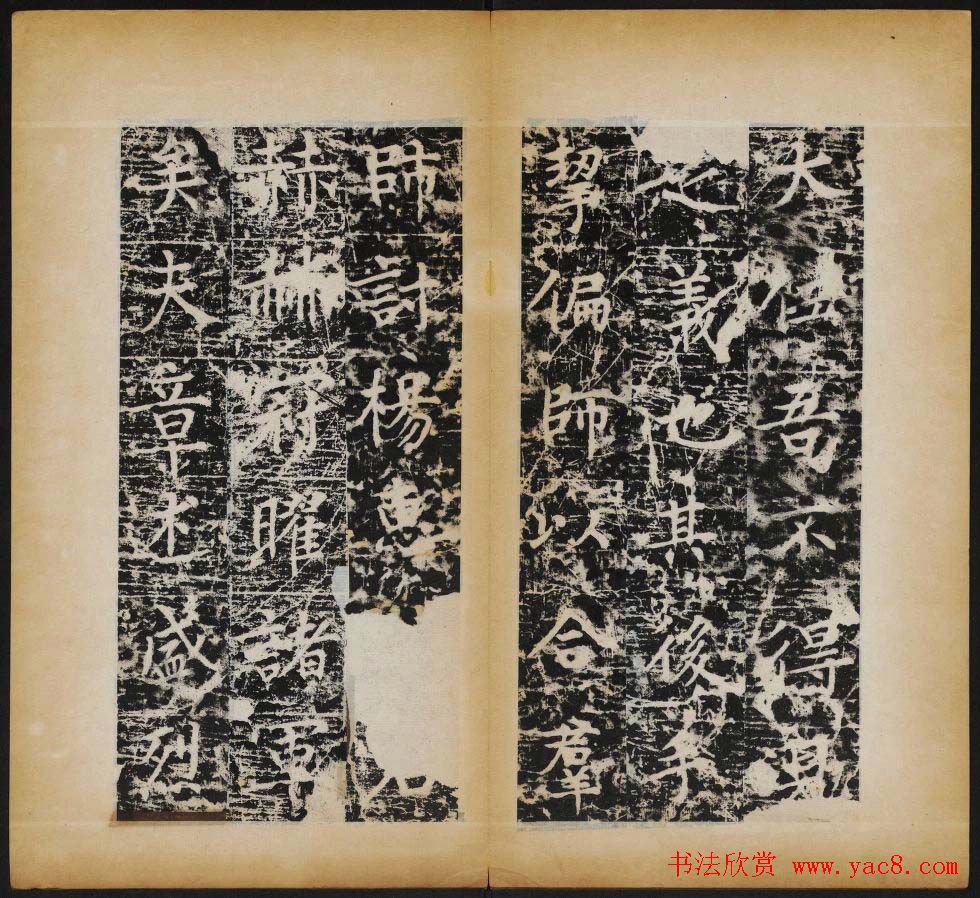 大吾不得
之義也其後手
挈偏師以合羣
帥討楊惠
赫赫曜諸軍
矣夫章述盛烈
书法欣赏 www.yac8.com